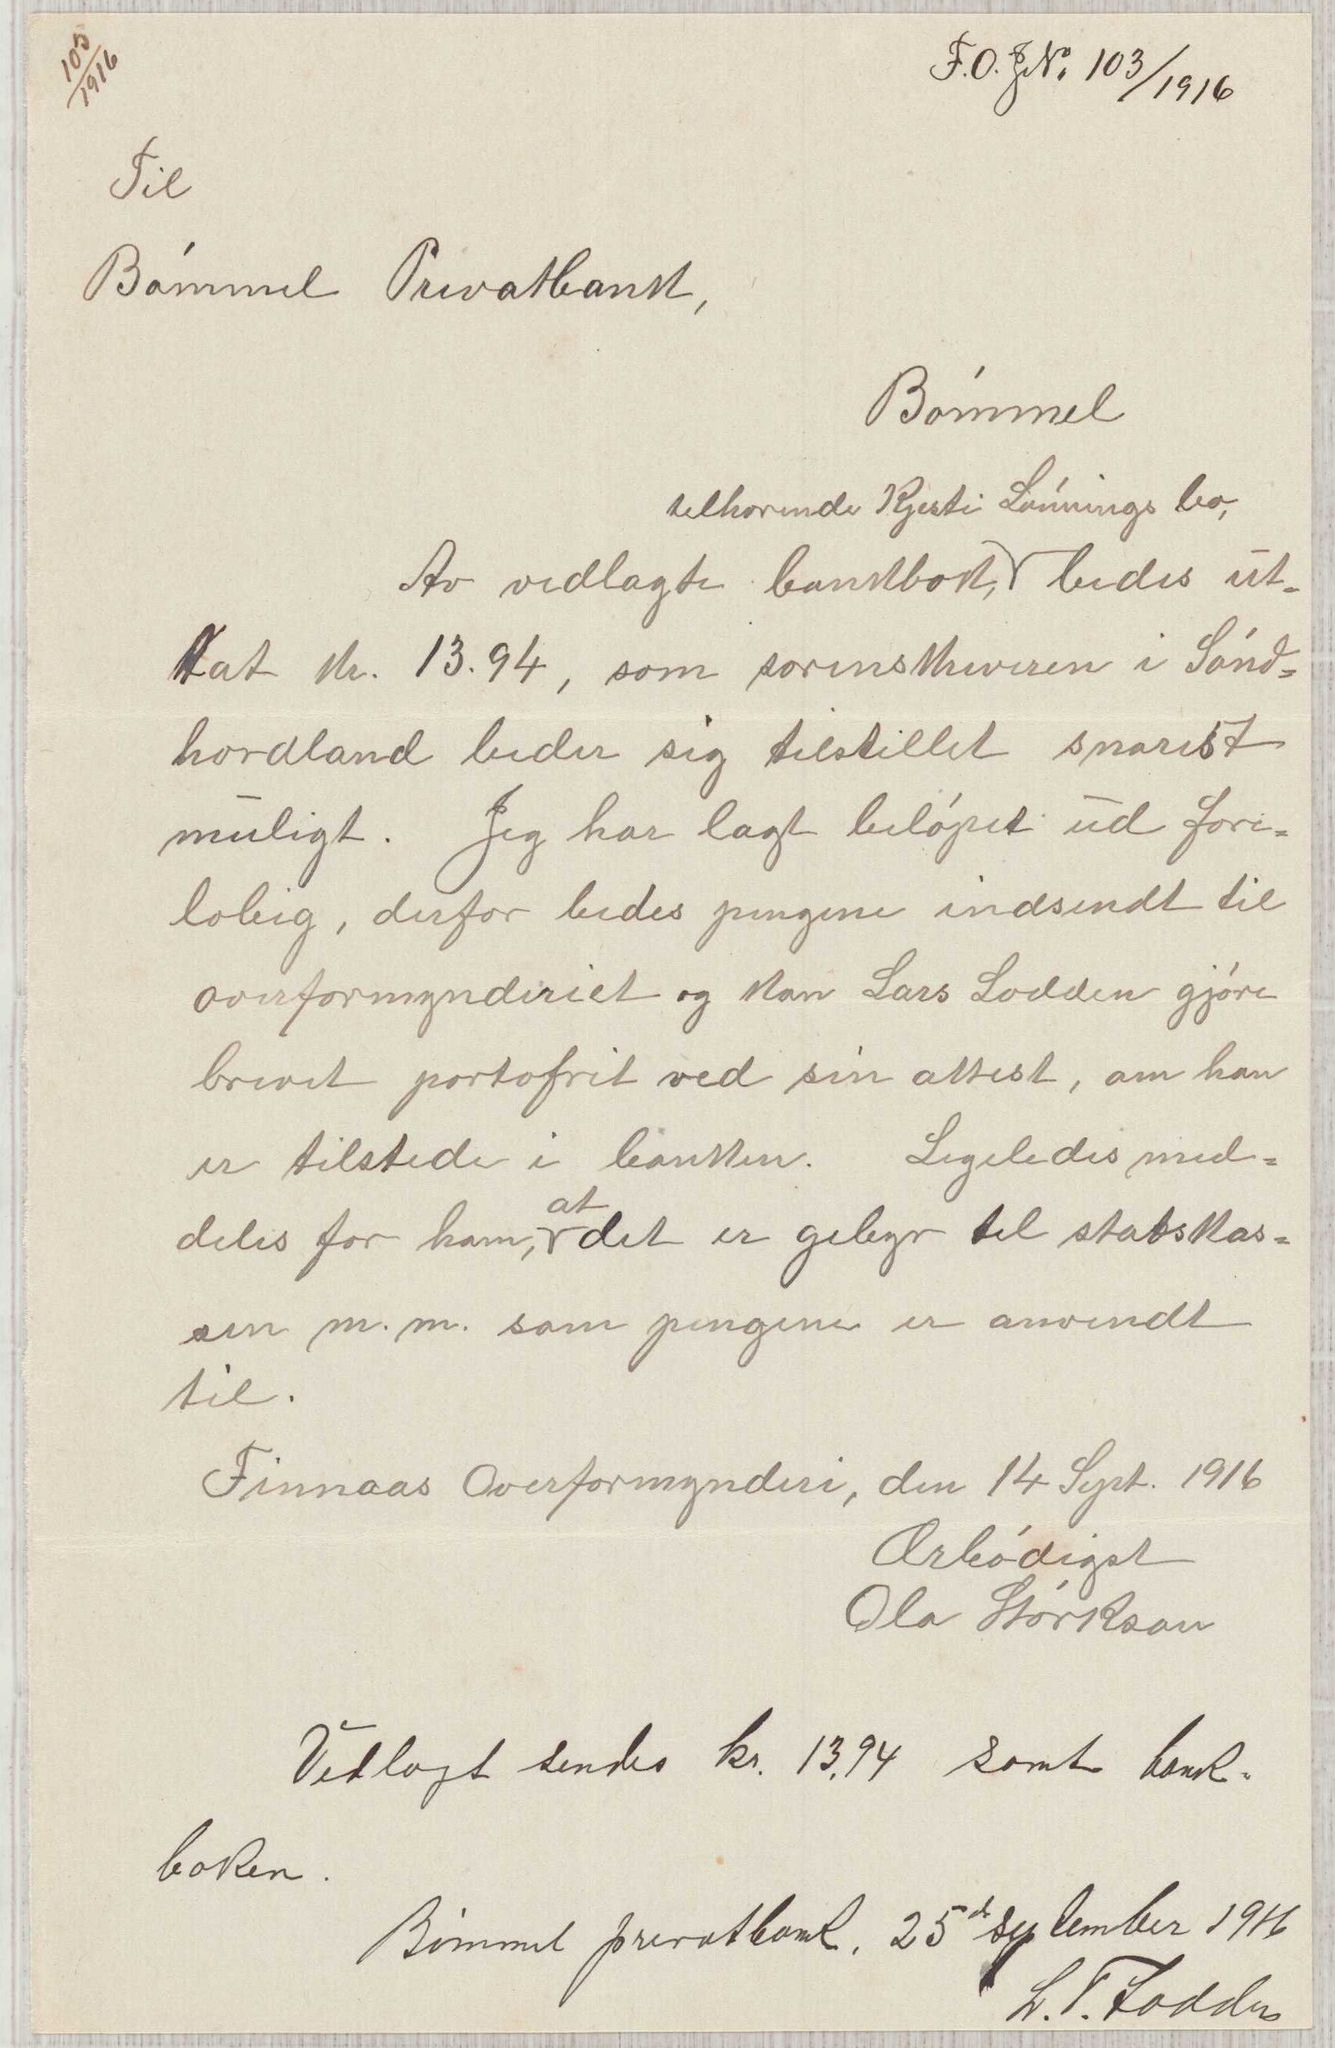 105/1916
F.O. J.No. 103/1916
Til
Bómmel Privatbank,
Bómmel
tilhørende Kjesti Lónnings bo,
Av vedlagte bankbok, bedes ūt-
tat kr. 13.94, som sorenskriveren i Sónd-
hordland beder sig tilstillet snarest
mūligt. Jeg har lagt belópet ūd fore-
lobig, derfor bedes pengene indsendt til
overformynderiet og kan Lars Lodden gjóre
brevet portofrit ved sin attest, om han
er tilstede i banken. Ligeledes med-
deles for ham, at det er gebyr til statskas-
sen m.m. som pengene er anvendt
til.
Finnaas Overformynderi, den 14 Sept. 1916
Ærbódigst
Ola Stórkson
Vedlagt sendes kr. 13,94 samt bank-
boken.
Bómmel privatbank, 25de september 1916
L. T. Lodden